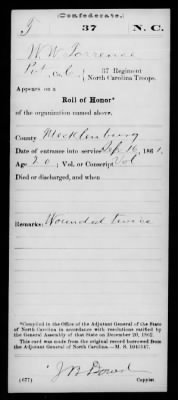 (Confederate.)
T 37 N. C.
W W Torrence
Pvt, Co. C, 37 Regiment
North Carolina Troops.
Appears on a
Roll of Honor*
of the organization named above.
County Mecklenburg
Date of entrance into service Sept 16, 1861.
Age 20; Vol. or Conscript Vol
Died or discharged, and when
Remarks: Wounded twice
*Compiled in the Office of the Adjutant General of the State
of North Carolina in accordance with resolutions ratified by
the General Assembly of that State on December 20, 1862.
This card was made from the original record borrowed from
the Adjutant General of North Carolina.—M. S.
(677) Copyist.